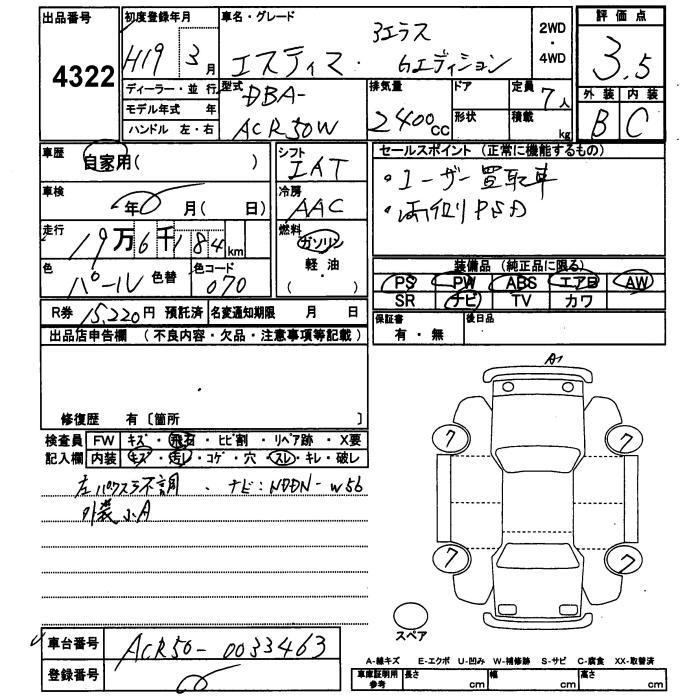 出品番号 4322
初度登録年月 H19年 3月
車名・グレード エスティマ・ 3エラス Gエディション
2WD・4WD
評価点 3.5
外装 B 内装 C
ディーラー・並行
モデル年式 年
ハンドル 左・右
型式 DBA-ACR50W
排気量 2400cc
ドア形状
定員 7人
積載 kg
車歴 自家用( )
車検 年 月( 日)
走行 19万6千184km
色 パール 色替 色コード 070
シフト IAT
冷房 AAC
燃料 ガソリン
軽・油
( )
セールスポイント(正常に機能するもの)
・ユーザー買取車
・両側PSD
装備品(純正品に限る)
PS PW ABS エアB AW
SR ナビ TV カワ
保証書 有・無 後日品
R券 15,220円 預託済 名変通知期限 月 日
出品店申告欄 (不良内容・欠品・注意事項等記載)
修復歴 有〔箇所 〕
検査員 FW キズ・飛石・ヒビ割・リペア跡・X要
記入欄 内装 キズ・汚レ・コゲ・穴・スレ・キレ・破レ
左パワスラ不調 ・ナビ:NDDN-W56
外装小A
A1
7 7
7 7
スペア
車台番号 ACR50-0033463
登録番号
A-線キズ E-エクボ U-凹み W-補修跡 S-サビ C-腐食 XX-取替済
車庫証明用参考 長さ cm 幅 cm 高さ cm